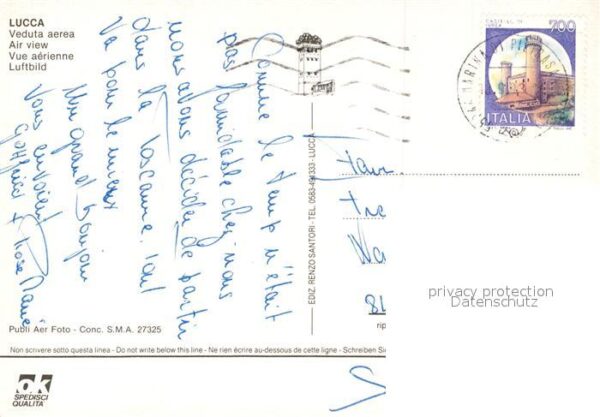 LUCCA
Veduta aerea
Air view
Vue aérienne
Luftbild
Comme le temps n'était
pas formidable chez nous
nous avons décider de partir
dans la Toscane. Tout
va pour le mieux
Un grand bonjour
Vous envoient
+ Rose Marie
EDIZ. RENZO SANTORI - TEL. 0583-491333 - LUCCA
700
ITALIA
MARINA DI PI
18
privacy protection
Datenschutz
Publi Aer Foto - Conc. S.M.A. 27325
rip
Non scrivere sotto questa linea - Do not write below this line - Ne rien écrire au-dessous de cette ligne - Schreiben Sie
ok
SPEDISCI
QUALITA'